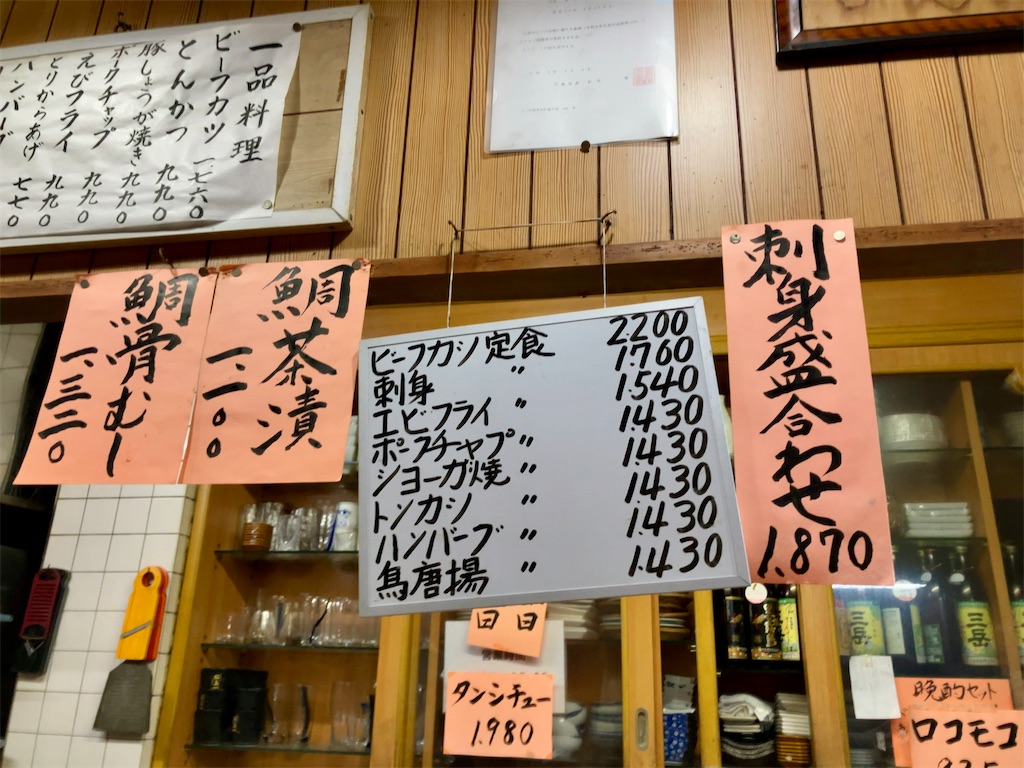 一品料理
ビーフカツ 一七六〇
とんかつ 九九〇
豚しょうが焼き 九九〇
ポークチャップ 九九〇
えびフライ 九九〇
とりからあげ 七七〇
ハンバーグ
鯛茶漬
一、一〇〇
鯛骨むし
一、三二〇
ビーフカツ定食 2200
刺身 〃 1.760
エビフライ 〃 1.540
ポークチャプ〃 1.430
ショーガ焼 〃 1.430
トンカツ 〃 1.430
ハンバーグ 〃 1.430
鳥唐揚 〃 1.430
刺身盛合わせ
1.870
タンシチュー
1.980
営業時間
三岳
三岳
晩酌セット
ロコモコ